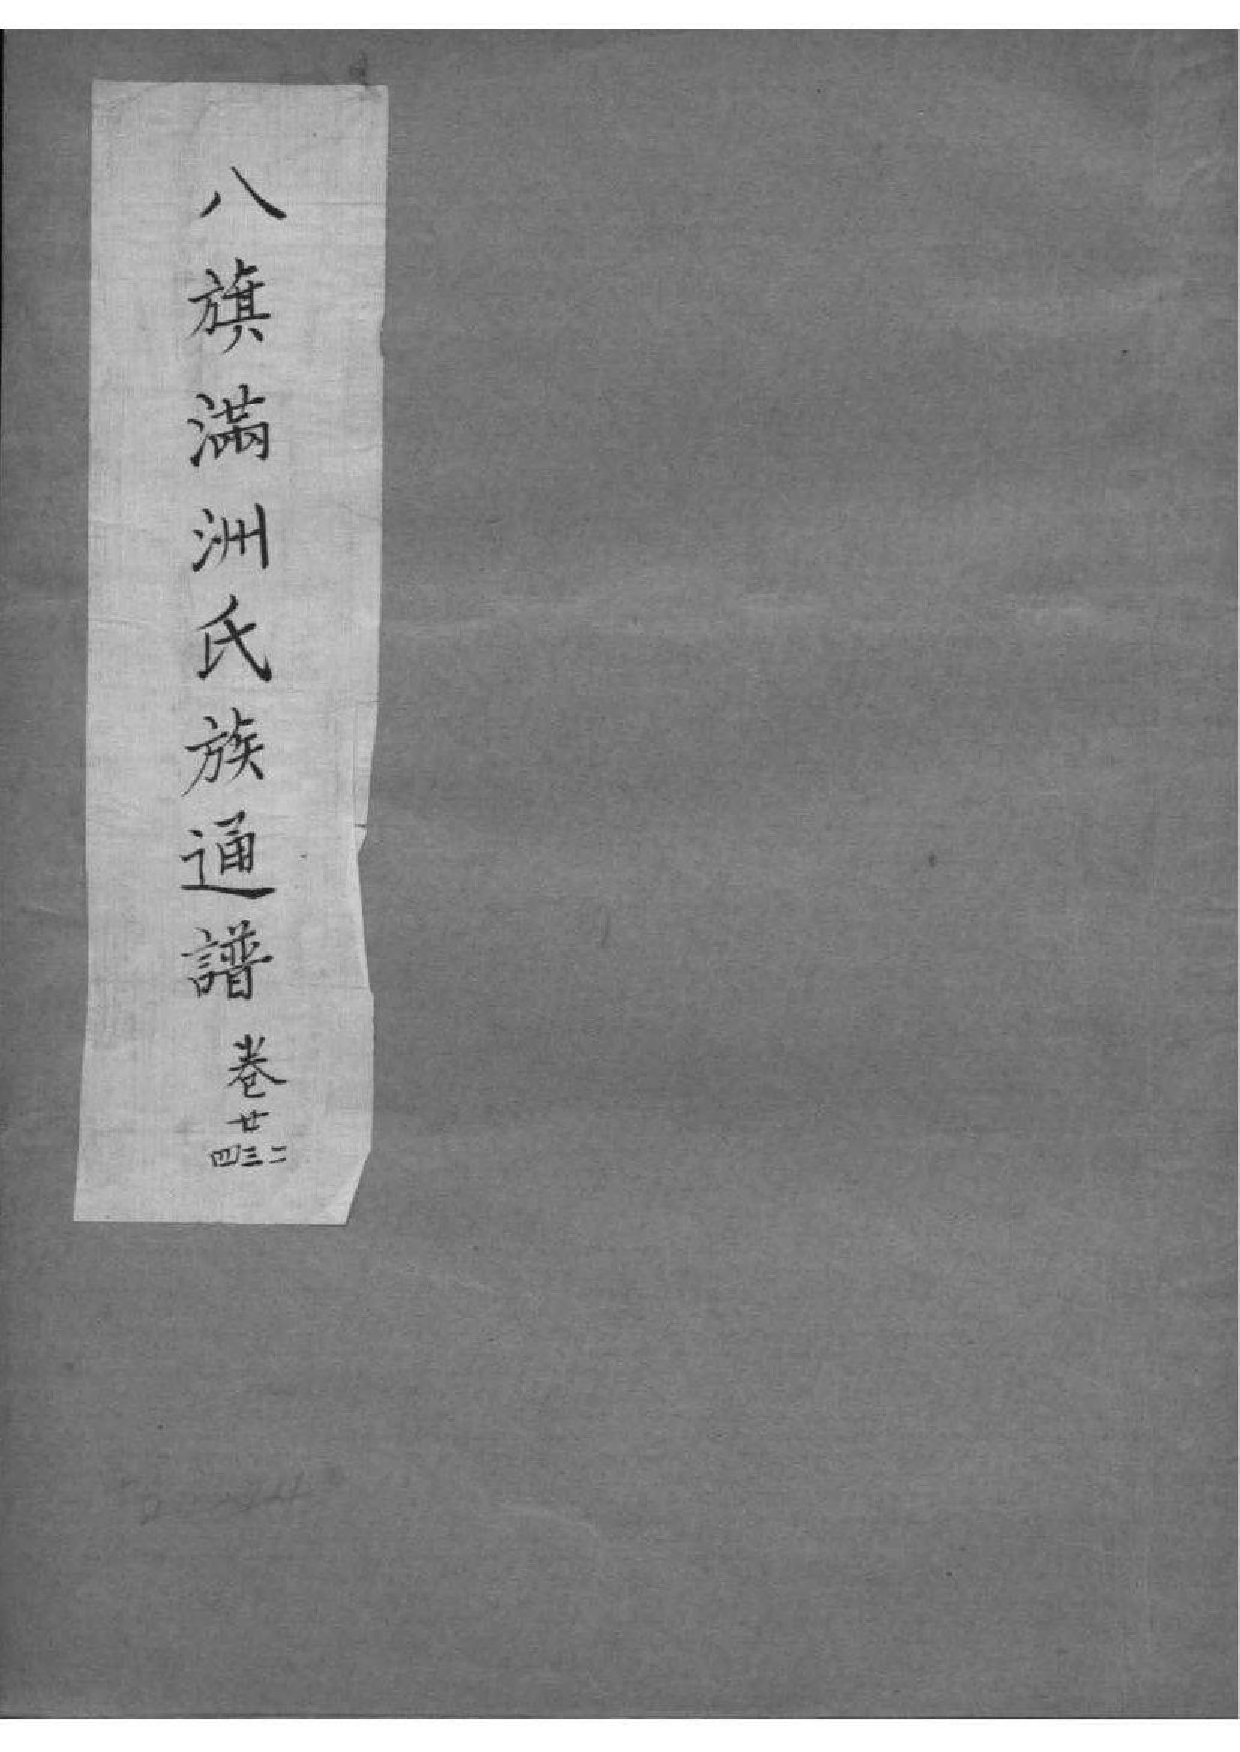 八旗滿洲氏族通譜
卷廿
二三四